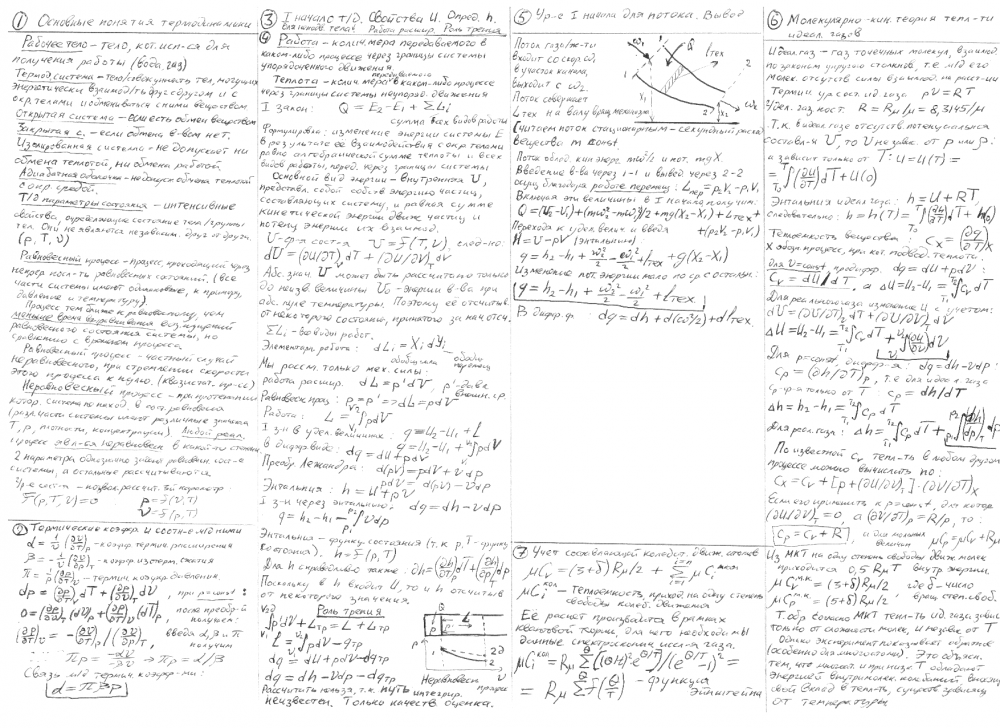 ① Основные понятия термодинамики
Рабочее тело – тело, кот. исп-ся для
получения работы (вода, газ)
Термод. система – тело/совокупность тел, могущих
энергетически взаимод-ть друг с другом и с
окр. телами и обмениваться с ними веществом
Открытая система – если есть обмен веществом
Закрытая с. – если обмена в-вом нет.
Изолированная система – не допускает ни
обмена теплотой, ни обмена работой.
Адиабатная оболочка – недопуск обмена теплотой
с окр. средой.
Т/Д параметры состояния – интенсивные
свойства, определяющие состояние тела/группы
тел. Они не являются независим. друг от друга.
(p, T, v)
Равновесный процесс – процесс, проходящий через
непрер. посл-ть равновесных состояний. (все
части системы имеют одинаковые, к примеру,
давление и температуру).
Процесс тем ближе к равновесному, чем
меньше время возвращения возмущенной
равновесного состояния системы, по
сравнению с временем процесса.
Равновесный процесс – частный случай
неравновесного, при стремлении скорости
этого процесса к нулю. (квазистат. пр-сс)
Неравновесный процесс – при протекании
котор. система не наход. в сост. равновесия
(разл. части системы имеют различные значения
T, p, плотности, концентрации). Любой реал.
процесс явл-ся неравновесн. в какой-то степени.
2 параметра однозначно задают равновесн. сост-е
системы, а остальные рассчитываются
Ур-е сост-я – позвол. рассчит-ть параметр:
F(p, T, v) = 0 p = f(v, T)
v = f(p, T)
② Термические коэфф. и соотн-е м/д ними
α = 1/v (∂v/∂T)p – коэфф. термич. расширения
β = -1/v (∂v/∂p)T – коэфф. изотерм. сжатия
π = 1/p (∂p/∂T)v – термич. коэфф. давления
dp = (∂p/∂v)T dv + (∂p/∂T)v dT, при p=const:
0 = (∂p/∂v)T (dv)p + (∂p/∂T)v (dT)p после преобр-й
получаем:
(∂p/∂T)v = -(∂v/∂T)p / (∂v/∂p)T, введя α, β и π
получим
πp = -αv/-βv => πp = α/β
Связь м/д термич. коэфф-ми:
α = πβp
③ I начало т/д. Свойства U. Опред. h.
Работа расшир. Роль трения
Работа – колич. мера передаваемого в
каком-либо процессе через границы системы
упорядоченного движения
Теплота – колич. мера передаваемого в каком-либо процессе
через границы системы неупоряд. движения
I закон: Q = E₂ – E₁ + ΣLi
сумма всех видов работы
Формулировка: изменение энергии системы E
в результате её взаимодействия с окр. телами
равно алгебраической сумме теплоты и всех
видов работы, перед. через границы системы
Основной вид энергии – внутренняя U,
представл. собой собств. энергию частиц,
составляющих систему, и равная сумме
кинетической энергии движ. частиц и
потенц. энергии их взаимод.
U – ф-я сост-я U = f(T, V), след-но:
dU = (∂U/∂T)v dT + (∂U/∂V)T dV
Абс. знач. U может быть рассчитано только
до неизв. величины U₀ – энергии в-ва при
абс. нуле температуры. Поэтому её отсчитыв.
от некоторого состояния, принятого за нач. отсч.
ΣLi – все виды работ.
Элементарн. работа: dLi = Xi dYi
обобщ. сила обобщ. перемещ.
Мы рассм. только мех. силы:
работа расшир. dL = p'dV, p' – давл.
внешн. ср.
Равновесн. проц: p = p' => dL = pdV
Работа: L = V₁∫V₂ pdV
I з-н в удел. величинах: q = u₂ – u₁ + l
в дифф. виде: dq = du + pdv q = u₂ – u₁ + v₁∫v₂ pdv
Преобр. Лежандра: d(pv) = pdv + vdp
pdv = d(pv) – vdp
Энтальпия: h = u + pv
I з-н через энтальпию: dq = dh – vdp
q = h₂ – h₁ – p₁∫p₂ vdp
Энтальпия – функц. состояния (т.к. p, T – функц.
состояния). h = f(p, T)
Для h справедливо также dh = (∂h/∂T)p dT + (∂h/∂p)T dp
Поскольку в h входит U, то и h отсчит.
от некоторого значения.
Роль трения
V₁∫V₂ p'dV + Lтр = L + Lтр
l = v₁∫v₂ pdv – qтр
dq = du + pdv – dqтр
dq = dh – vdp – dqтр
Неравновесн. процесс
Рассчитать нельзя, т.к. путь интегрир.
неизвестен. Только качеств. оценка.
⑤ Ур-е I начала для потока. Вывод
Поток газа/ж-ти
входит со скор. ω₁
в участок канала,
выходит с ω₂.
Поток совершает
Lтех на валу вращ. механизма
Считаем поток стационарным – секундный расход
вещества m const.
Поток облад. кин. энерг. mω²/2 и пот. mgX.
Введение в-ва через 1–1 и вывод через 2–2
осущ. благодаря работе перемещ: Lпер = p₂V₂ – p₁V₁
Включая эти величины в I начало получим:
Q = (U₂–U₁) + (mω₂²–mω₁²)/2 + mg(X₂–X₁) + Lтех +
+ (p₂V₂ – p₁V₁)
Переходя к удел. велич. и введя
H = U – pV (энтальпию):
q = h₂ – h₁ + ω₂²/2 – ω₁²/2 + lтех + g(X₂ – X₁)
Изменение пот. энергии мало по ср. с остальн.:
q = h₂ – h₁ + ω₂²/2 – ω₁²/2 + lтех
В дифф. ф: dq = dh + d(ω²/2) + dlтех.
⑦ Учёт составляющей колебат. движ. атомов
μCv = (3+δ)Rμ/2 + i=1Σi=n μCi кол
μCi кол – Теплоемкость, приход. на одну степень
свободы колеб. движения
Её расчет производится в рамках
квантовой теории, для чего необходимы
данные спектроскопич. иссл-я газа.
μCi кол = Rμ Σ((Θ/T)² e^Θ/T)/(e^Θ/T – 1)² =
= Rμ Σ f(Θ/T) – функция
Эйнштейна
⑥ Молекулярно-кин. теория тепл-ти
идеал. газов
Идеал. газ – газ точечных молекул, взаимод.
по законам упругого столкнов., т.е. м/д его
молек. отсутств. силы взаимод. на расст-ии
Термич. ур. сост. ид. газа pv = RT
Удел. газ. пост. R = Rμ/μ = 8,3145/μ
Т.к. в идеал. газе отсутств. потенциальная
составл-я U, то U не завис. от p или v:
а зависит только от T: u = u(T) =
= T₀∫T (∂u/∂T) dT + u(0)
Энтальпия идеал. газа: h = u + RT,
следовательно: h = h(T) = T₀∫T (∂h/∂T) dT + h(0)
Теплоемкость вещества Cx = (∂q/∂T)x
X обозн. процесс, при кот. подвод. теплота.
Для v=const продифф. dq = du + pdv:
Cv = du/dT, а Δu = u₂ – u₁ = T₁∫T₂ Cv dT
Для реального газа изменение u с учетом:
dU = (∂U/∂T)v dT + (∂U/∂V)T dV
ΔU = U₂ – U₁ = T₁∫T₂ Cv dT + V₁∫V₂ (∂U/∂V)T dV
Для p=const, дифф-я: dq = dh – vdp:
Cp = (∂h/∂T)p, т.е. для идеал. газа
Cp – ф-я только от T: Cp = dh/dT
Δh = h₂ – h₁ = T₁∫T₂ Cp dT
Для реал. газа: Δh = T₁∫T₂ Cp dT + p₁∫p₂ (∂h/∂p)T dp
По известной Cv тепл-ть в любом другом
процессе можно вычислить по:
Cx = Cv + [p + (∂u/∂v)T]·(∂v/∂T)x
Если его применить к p=const, для котор.
(∂u/∂v)T = 0, а (∂v/∂T)p = R/p, то:
Cp = Cv + R, и для молярных величин μCp = μCv + Rμ
Из МКТ на одну степень свободы движ. молек.
приходится 0,5 RμT внутр. энергии.
μCv = (3+δ)Rμ/2 где δ – число
μCp = (5+δ)Rμ/2, вращ. степ. своб.
Т. обр. согласно МКТ тепл-ть ид. газа зависит
только от сложности молек. и не завис. от T
Однако эксперимент показывает обратное
(особенно для многоатомн.). Это объясн.
тем, что многоат. и при низк. T обладают
энергией внутримолек. колебаний, вносящ.
свой вклад в тепл-ть, существ. зависящ.
от температуры